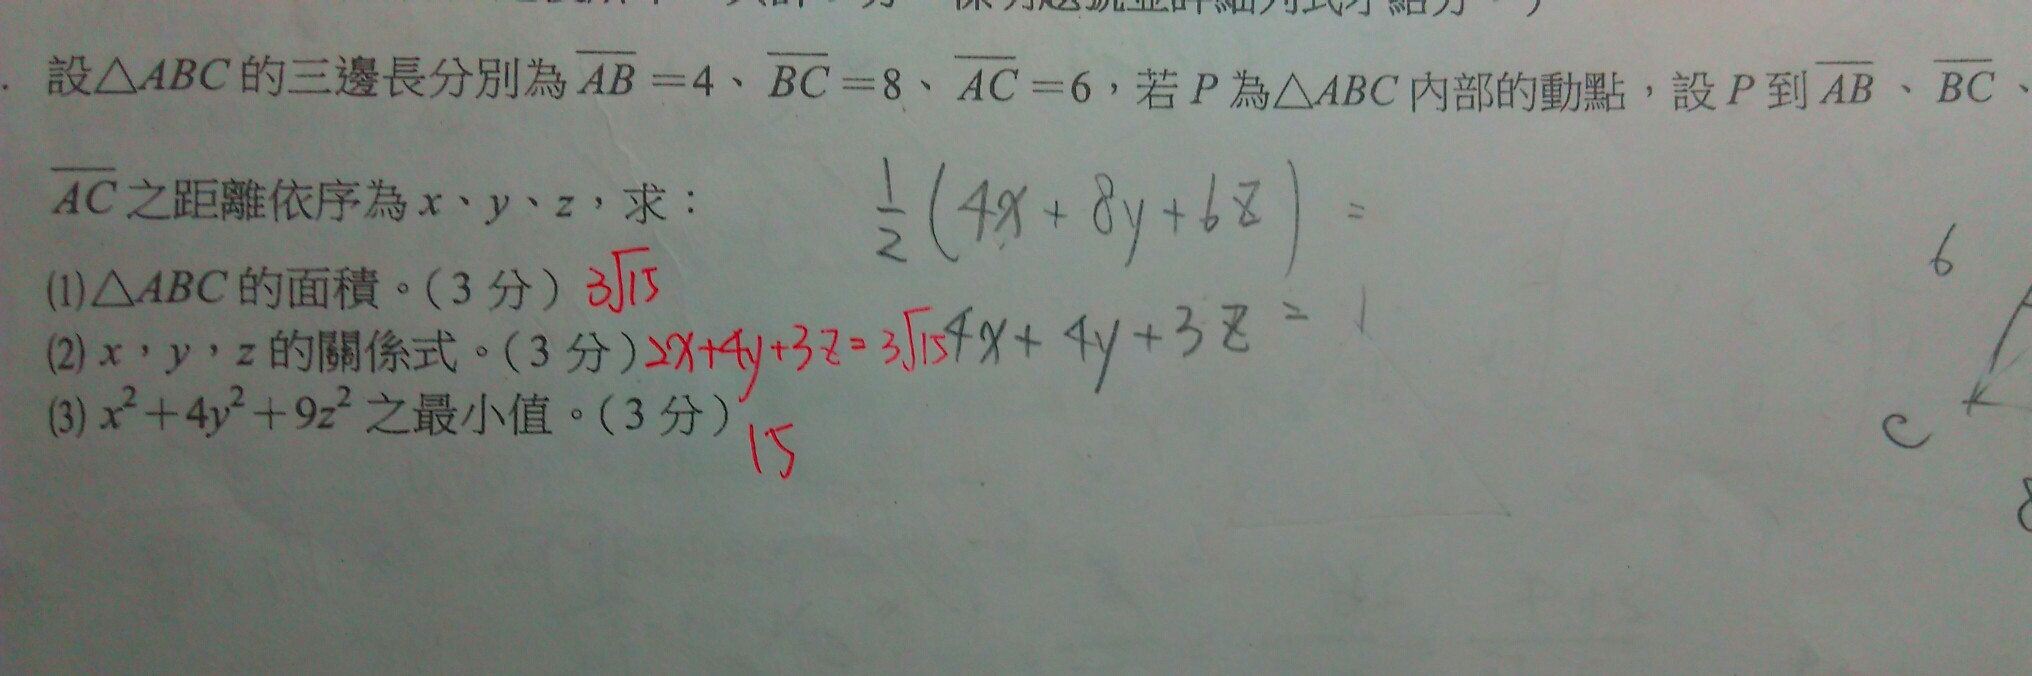 設△ABC的三邊長分別為AB=4、BC=8、AC=6，若P為△ABC內部的動點，設P到AB、BC、
AC之距離依序為x、y、z，求：
1/2(4x+8y+6z)=
(1)△ABC的面積。(3分) 3√15
(2) x，y，z的關係式。(3分) 2x+4y+3z=3√15
4x+4y+3z=1
(3) x²+4y²+9z²之最小值。(3分)
15
6
C